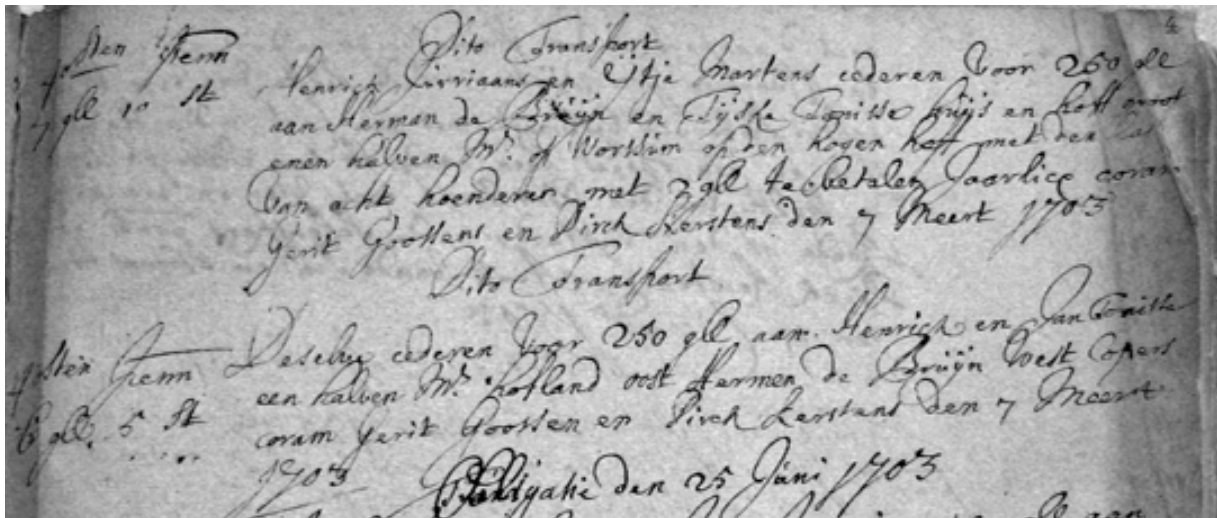 Dito Transport
4osten penn Henrick Jurriaans en Eijtja Martens cederen voor 260 gll
7 gll 10 st aan Herman de Bruijn en Tijske Tonisse huijs en hoff groot
enen halven Mr. op Wortkum op den hogen hoff met den last
van acht hoenderen met 2 gll te betalen Jaarlice coram
Gerit Goossens en Dirck Kerstens den 7 Meert 1703
Dito Transport
4osten penn Deselve cederen voor 250 gll aan Henrick en Jan Tonisse
6 gll. 5 st een halven Mr. hofland oost Hermen de Bruijn West Copers
coram Gerit Goossen en Dirck Kerstens den 7 Meert
1703
Obligatie den 25 Juni 1703
aan